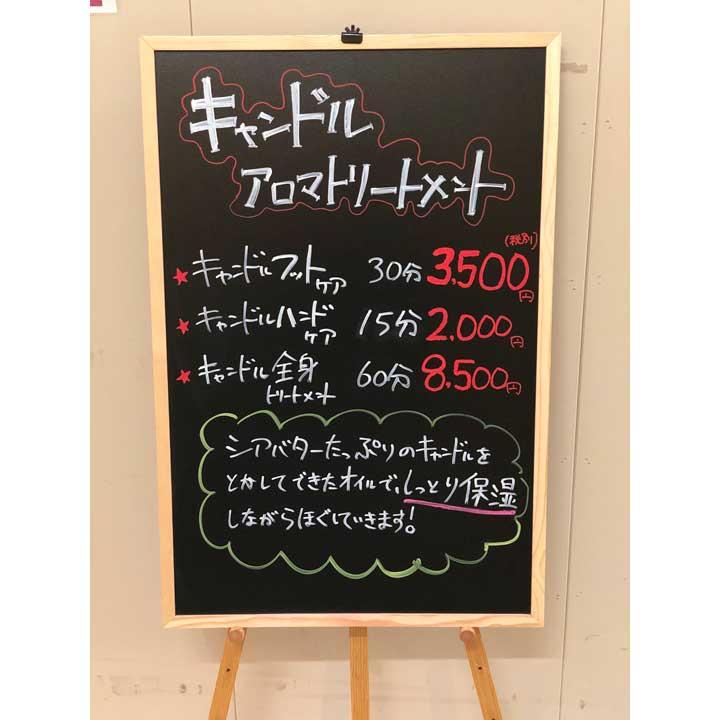 キャンドル
アロマトリートメント
(税別)
★キャンドルフットケア 30分 3,500円
★キャンドルハンドケア 15分 2,000円
★キャンドル全身トリートメント 60分 8,500円
シアバターたっぷりのキャンドルを
とかしてできたオイルで、しっとり保湿
しながらほぐしていきます!